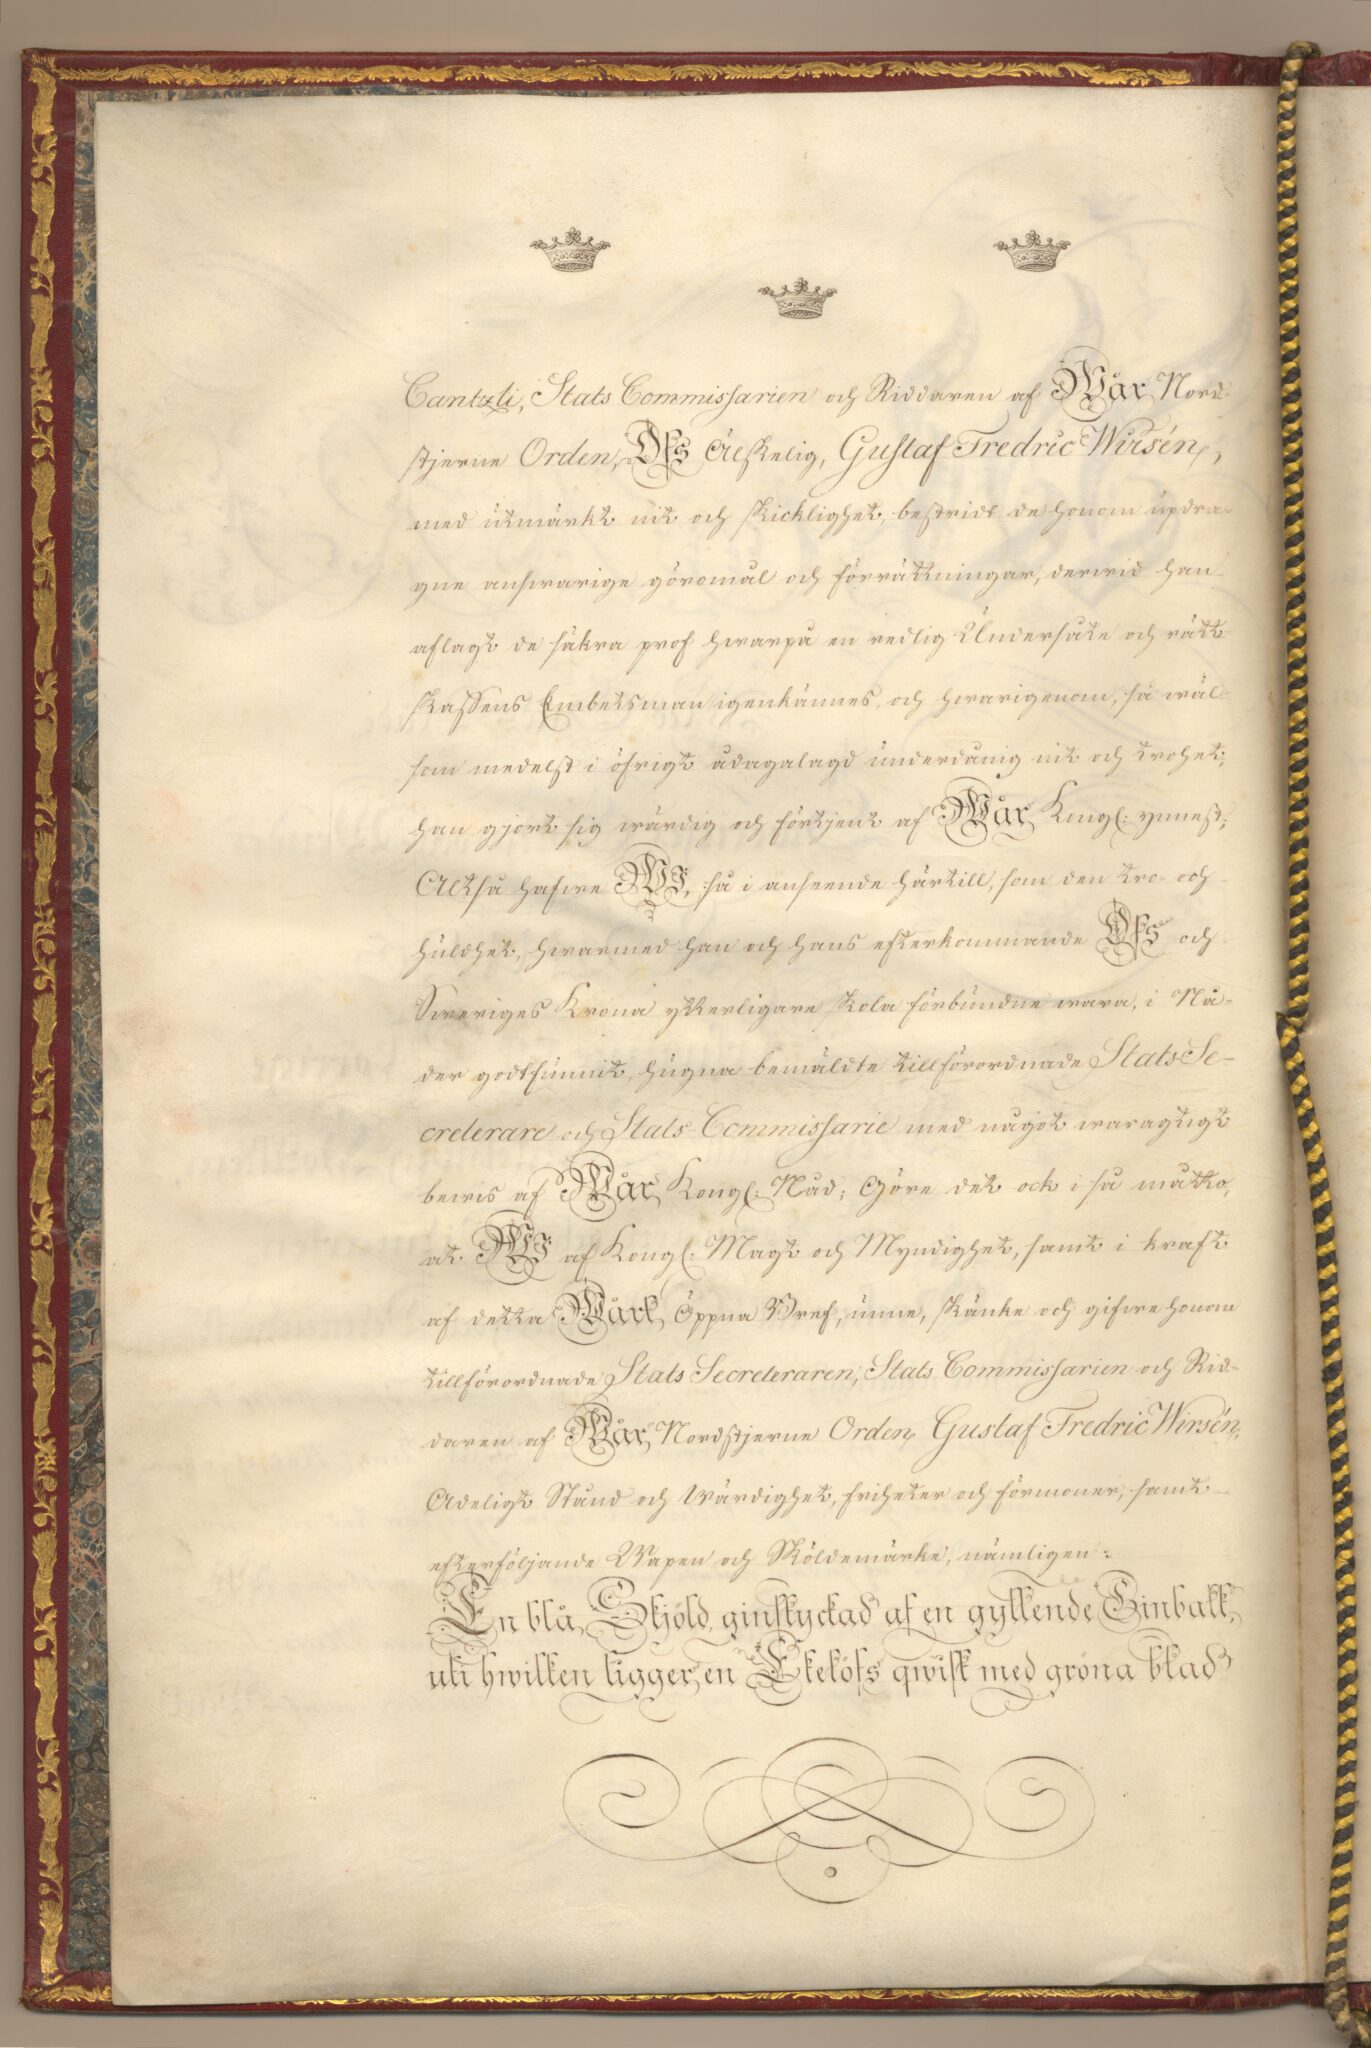 Cantzli, Stats Commissarien och Riddaren af Wår Nord-
stjerne Orden, Oss Älskelig, Gustaf Fredric Wirsén,
med utmärkt nit och skicklighet, bestridt de honom updra-
gne answarige göromål och förrättningar, derwid han
aflagt de säkra prof hwarpå en redlig Undersåte och rätt-
skaffens Embetsman igenkännes, och hwarigenom, så wäl-
som medelst i öfrigt ådagalagd underdånig nit och trohet,
han gjort sig wärdig och förtjent af Wår Kongl: ynnest;
Altså hafwe Wi, så i anseende härtill, som den tro- och
huldhet, hwarmed han och hans efterkommande Oss och
Sweriges Krona ytterligare skola förbundne wara, i Nå-
der godtfunnit, hugna bemäldte tillförordnade Stats Se-
creterare och Stats-Commissarie med något waragtigt
bewis af Wår Kongl: Nåd; Göre det ock i så matto,
at Wi af Kongl: Magt och Myndighet, samt i kraft
af detta Wårt Öppna Bref, unne, skänke och gifwe honom
tillförordnade Stats Secreteraren, Stats Commissarien och Rid-
daren af Wår Nordstjerne Orden Gustaf Fredric Wirsén,
Adeligt Stånd och Wärdighet, friheter och förmoner, samt
efterföljande Wapen och Sköldemärke, nämligen:
En blå Skjöld, ginstyckad af en gyllende Ginbalk,
uti hwilken ligger en Eklöfs qwist med gröna blad